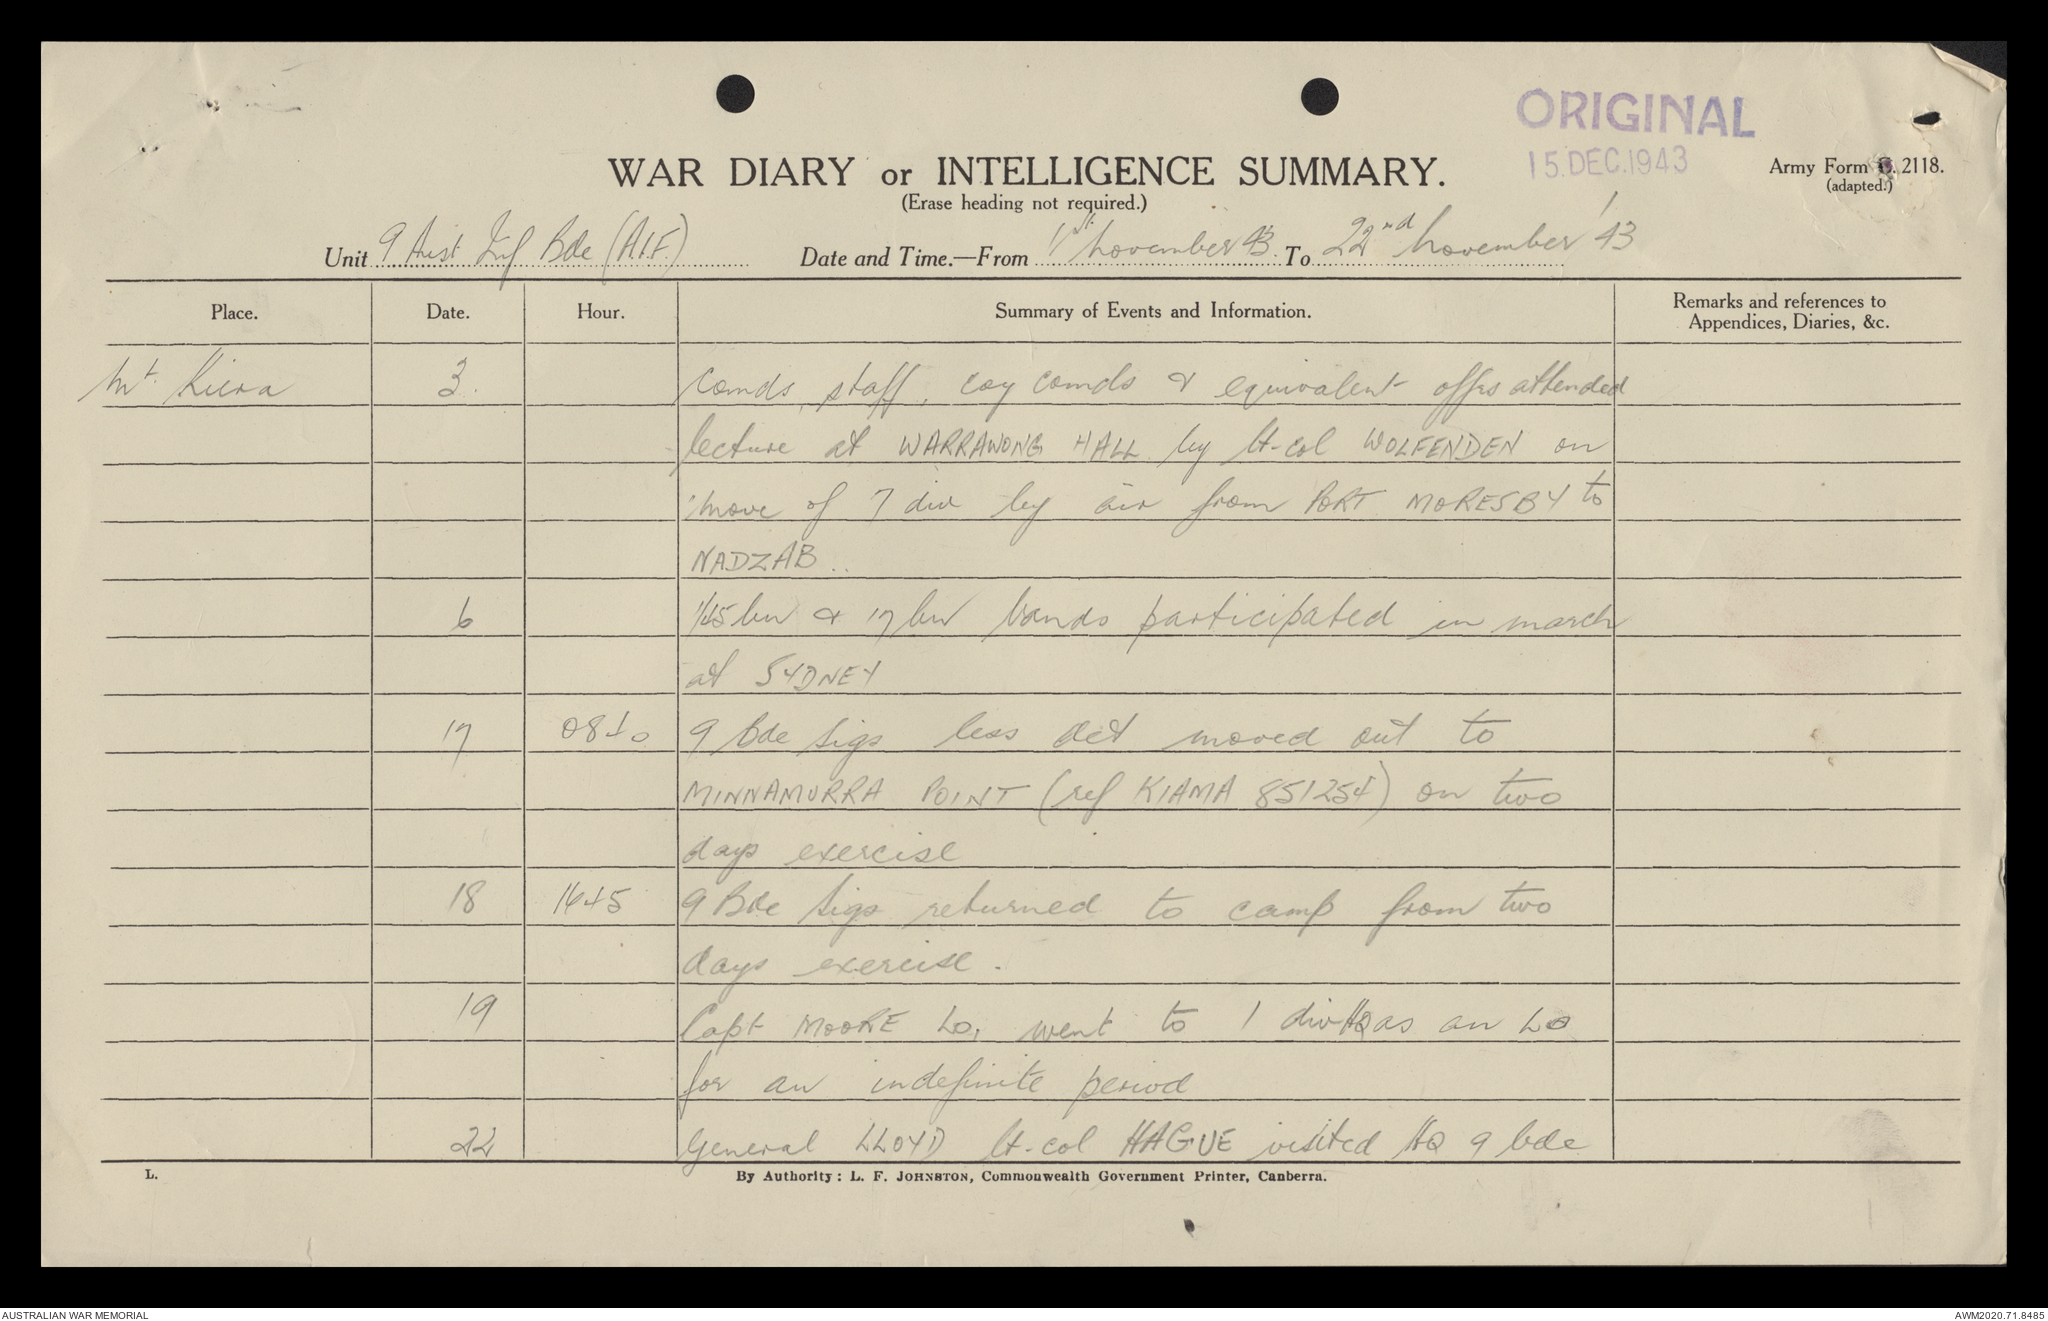 ORIGINAL
15 DEC. 1943
WAR DIARY or INTELLIGENCE SUMMARY.
Army Form C. 2118.
(adapted.)
(Erase heading not required.)
Unit 9 Aust Inf Bde (A.I.F.) Date and Time.—From 1st November 43 To 22nd November '43
Place. Date. Hour. Summary of Events and Information. Remarks and references to
Appendices, Diaries, &c.
Mt. Kiera 3. Comds, staff, coy comds & equivalent offrs attended
lecture at WARRAWONG HALL by lt-col WOLFENDEN on
move of 7 div by air from PORT MORESBY to
NADZAB..
6 1/45 bn & 17 bn bands participated in march
at SYDNEY
17 9 Bde Sigs less det moved out to
MINNAMURRA POINT (ref KIAMA 851254) on two
days exercise
18 1645 9 Bde Sigs returned to camp from two
days exercise.
19 Capt MOORE LO, went to 1 div HQ as an LO
for an indefinite period
22 General LLOYD lt-col HAGUE visited HQ 9 bde
L. By Authority: L. F. JOHNSTON, Commonwealth Government Printer, Canberra.
AUSTRALIAN WAR MEMORIAL AWM2020.71.8485